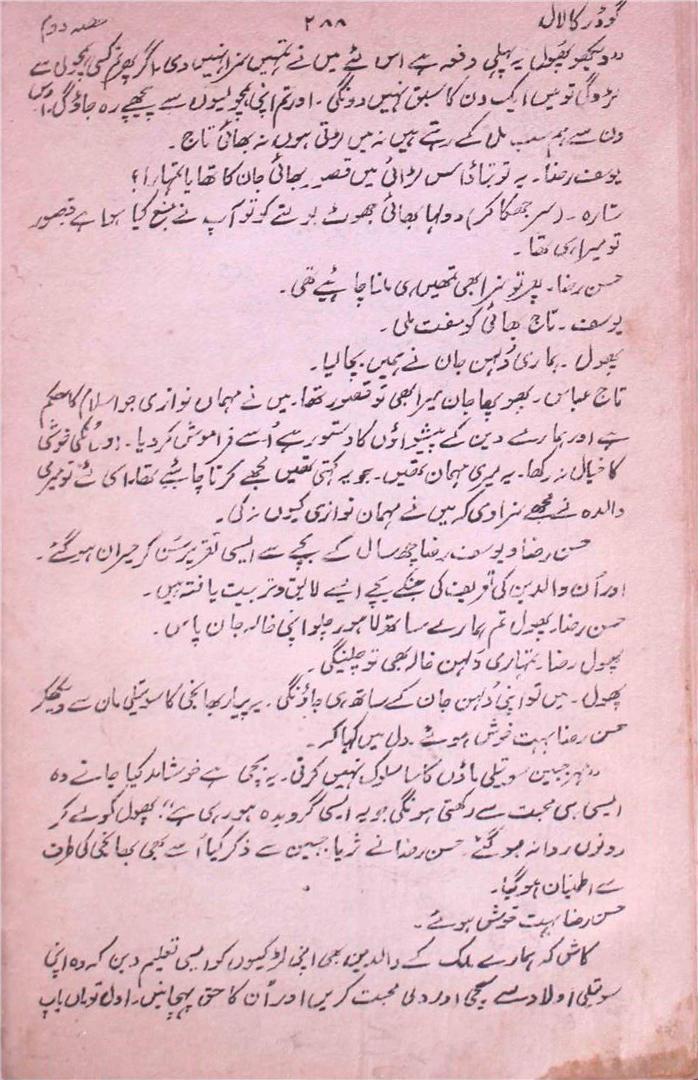 گودڑ کا لال ۲۸۸ حصہ دوم
"دیکھو پھول یہ پہلی دفعہ ہے اس لئے میں نے تمہیں سزا نہیں دی۔ اگر پھر تم کسی ہمجولی سے
لڑوگی تو میں ایک دن کا سبق نہیں دونگی۔ اور تم اپنی ہمجولیوں سے پیچھے رہ جاؤگی۔ اس
دن سے ہم سب مل کے رہتے ہیں نہ میں لڑتی ہوں نہ بھائی تاج۔
یوسف رضا۔ یہ تو بتاؤ اس لڑائی میں قصور بھائی جان کا تھا یا تمہارا؟
ستارہ۔ (سر جھکا کر) دولہا بھائی جھوٹ بولنے کو تو آپ نے منع کیا ہوا ہے قصور
تو میرا ہی تھا۔
حسن رضا۔ پھر تو سزا بھی تمھیں ہی ملنا چاہئیے تھی۔
یوسف۔ تاج بھائی کو مفت ملی۔
پھول۔ ہماری دُلہن جان نے ہمیں بچا لیا۔
تاج عباس۔ پھوپھا جان میرا بھی تو قصور تھا۔ میں نے مہماں نوازی جو اسلام کا حکم
ہے اور ہمارے دین کے پیشواؤں کا دستور ہے اُسے فراموش کر دیا۔ اور اُنکی خوشی
کا خیال نہ رکھا۔ یہ میری مہمان تھیں۔ جو یہ کہتی تھیں مجھے کرنا چاہئیے تھا۔ اسی لئے تو میری
والدہ نے مجھے سزا دی کہ میں نے مہمان نوازی کیوں نہ کی۔
حسن رضا و یوسف رضا چھ سال کے بچے سے ایسی تقریر سُن کر حیران ہو گئے۔
اور اُن والدین کی تعریف کی جنکے بچے ایسے لایق و تربیت یافتہ ہیں۔
حسن رضا۔ پھول تم ہمارے ساتھ لاہور چلو اپنی خالہ جان پاس۔
پھول رضا۔ تمہاری دُلہن خالہ بھی تو چلینگی۔
پھول۔ میں تو اپنی دُلہن جان کے ساتھ ہی جاؤنگی۔ یہ پیار بھانجی کا سوتیلی مان سے دیکھکر
حسن رضا بہت خوش ہوئے۔ دل میں کہا کہ۔
"مہر جبین سوتیلی ماؤں کا سا سلوک نہیں کرتی۔ یہ بچی ہے خوشامد کیا جانے وہ
ایسی ہی محبت سے رکھتی ہونگی جو یہ ایسی گرویدہ ہو رہی ہے"۔ پھول کو لے کر
دونوں روانہ ہو گئے۔ حسن رضا نے ثریا جبین سے ذکر کیا اُسے بھی بھانجی کی طرف
سے اطمینان ہو گیا۔
حسن رضا بہت خوش ہوئے۔
کاش کہ ہمارے ملک کے والدین بھی اپنی لڑکیوں کو ایسی تعلیم دین کہ وہ اپنی
سوتیلی اولاد سے سچی اور دلی محبت کریں اور اُن کا حق پہچانیں۔ اول تو ماں باپ